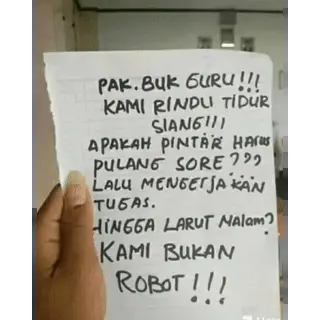 PAK. BUK GURU!!!
KAMI RINDU TIDUR
SIANG!!!
APAKAH PINTAR HARUS
PULANG SORE???
LALU MENGERJAKAN
TUGAS.
HINGGA LARUT MALAM?
KAMI BUKAN
ROBOT!!!